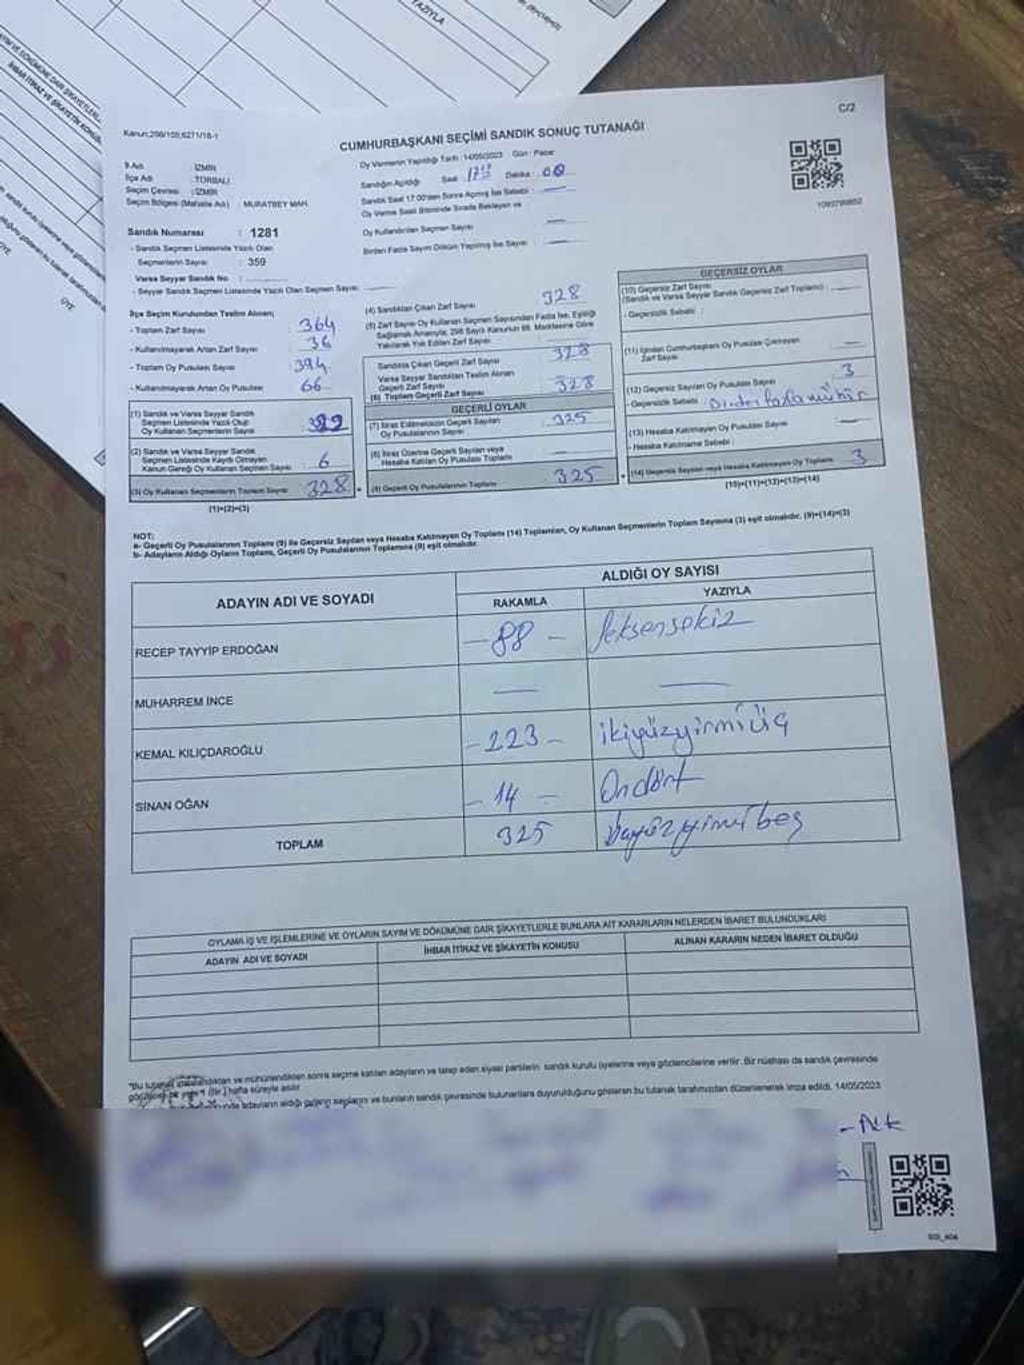 YAZIYLA
C/2
CUMHURBAŞKANI SEÇİMİ SANDIK SONUÇ TUTANAĞI
İl Adı : İZMİR
İlçe Adı : TORBALI
Seçim Çevresi : İZMİR
Seçim Bölgesi (Mahalle Adı) : MURATBEY MAH.
Oy Vermenin Yapıldığı Tarih : 14/05/2023 Gün : Pazar
Sandığın Açıldığı Saat Dakika : 00
Sandık Saat 17:00'den Sonra Açılmış İse Sebebi :
Oy Verme Saati Bitiminde Sırada Bekleyen ve
Oy Kullandırılan Seçmen Sayısı :
Birden Fazla Sayım Döküm Yapılmış İse Sayısı :
Sandık Numarası : 1281
- Sandık Seçmen Listesinde Yazılı Olan
Seçmenlerin Sayısı : 359
Varsa Seyyar Sandık No :
- Seyyar Sandık Seçmen Listesinde Yazılı Olan Seçmen Sayısı :
İlçe Seçim Kurulundan Teslim Alınan;
- Toplam Zarf Sayısı : 364
- Kullanılmayarak Artan Zarf Sayısı : 36
- Toplam Oy Pusulası Sayısı : 394
- Kullanılmayarak Artan Oy Pusulası : 66
(1) Sandık ve Varsa Seyyar Sandık
Seçmen Listesinde Yazılı Olup
Oy Kullanan Seçmenlerin Sayısı :
(2) Sandık ve Varsa Seyyar Sandık
Seçmen Listesinde Kaydı Olmayan
Kanun Gereği Oy Kullanan Seçmen Sayısı : 6
(3) Oy Kullanan Seçmenlerin Toplam Sayısı : 328
(1)+(2)=(3)
(4) Sandıktan Çıkan Zarf Sayısı : 328
(5) Zarf Sayısı Oy Kullanan Seçmen Sayısından Fazla İse, Eşitliği
Sağlamak Amacıyla, 298 Sayılı Kanunun 98. Maddesine Göre
Yakılarak Yok Edilen Zarf Sayısı :
Sandıkta Çıkan Geçerli Zarf Sayısı : 328
Varsa Seyyar Sandıktan Teslim Alınan
Geçerli Zarf Sayısı :
(6) Toplam Geçerli Zarf Sayısı : 328
GEÇERLİ OYLAR
(7) İtiraz Edilmeksizin Geçerli Sayılan
Oy Pusulalarının Sayısı : 325
(8) İtiraz Üzerine Geçerli Sayılan veya
Hesaba Katılan Oy Pusulası Toplamı :
(9) Geçerli Oy Pusulalarının Toplamı : 325
GEÇERSİZ OYLAR
(10) Geçersiz Zarf Sayısı
(Sandık ve Varsa Seyyar Sandık Geçersiz Zarf Toplamı) :
- Geçersizlik Sebebi :
(11) İçinden Cumhurbaşkanı Oy Pusulası Çıkmayan
Zarf Sayısı :
(12) Geçersiz Sayılan Oy Pusulası Sayısı : 3
- Geçersizlik Sebebi : Birden fazla mühür
(13) Hesaba Katılmayan Oy Pusulası Sayısı :
- Hesaba Katılmama Sebebi :
(14) Geçersiz Sayılan veya Hesaba Katılmayan Oy Toplamı : 3
(10)+(11)+(12)+(13)=(14)
NOT:
a- Geçerli Oy Pusulalarının Toplamı (9) ile Geçersiz Sayılan veya Hesaba Katılmayan Oy Toplamı (14) Toplamları, Oy Kullanan Seçmenlerin Toplam Sayısına (3) eşit olmalıdır. (9)+(14)=(3)
b- Adayların Aldığı Oyların Toplamı, Geçerli Oy Pusulalarının Toplamına (9) eşit olmalıdır.
ADAYIN ADI VE SOYADI
ALDIĞI OY SAYISI
RAKAMLA YAZIYLA
RECEP TAYYİP ERDOĞAN - 88 - Seksensekiz
MUHARREM İNCE — —
KEMAL KILIÇDAROĞLU - 223 - ikiyüzyirmiüç
SİNAN OĞAN - 14 - Ondört
TOPLAM 325
OYLAMA İŞ VE İŞLEMLERİNE VE OYLARIN SAYIM VE DÖKÜMÜNE DAİR ŞİKAYETLERLE BUNLARA AİT KARARLARIN NELERDEN İBARET BULUNDUKLARI
ADAYIN ADI VE SOYADI İHBAR İTİRAZ VE ŞİKAYETİN KONUSU ALINAN KARARIN NEDEN İBARET OLDUĞU
ve mühürlendikten sonra seçime katılan adayların ve talep eden siyasi partilerin sandık kurulu üyelerine veya gözlemcilerine verilir. Bir nüshası da sandık çevresinde
(bir) hafta süreyle asılır.
adayların aldığı oyların sayılarını ve bunların sandık çevresinde bulunanlara duyurulduğunu gösteren bu tutanak tarafımızdan düzenlenerek imza edildi. 14/05/2023
ÜYE